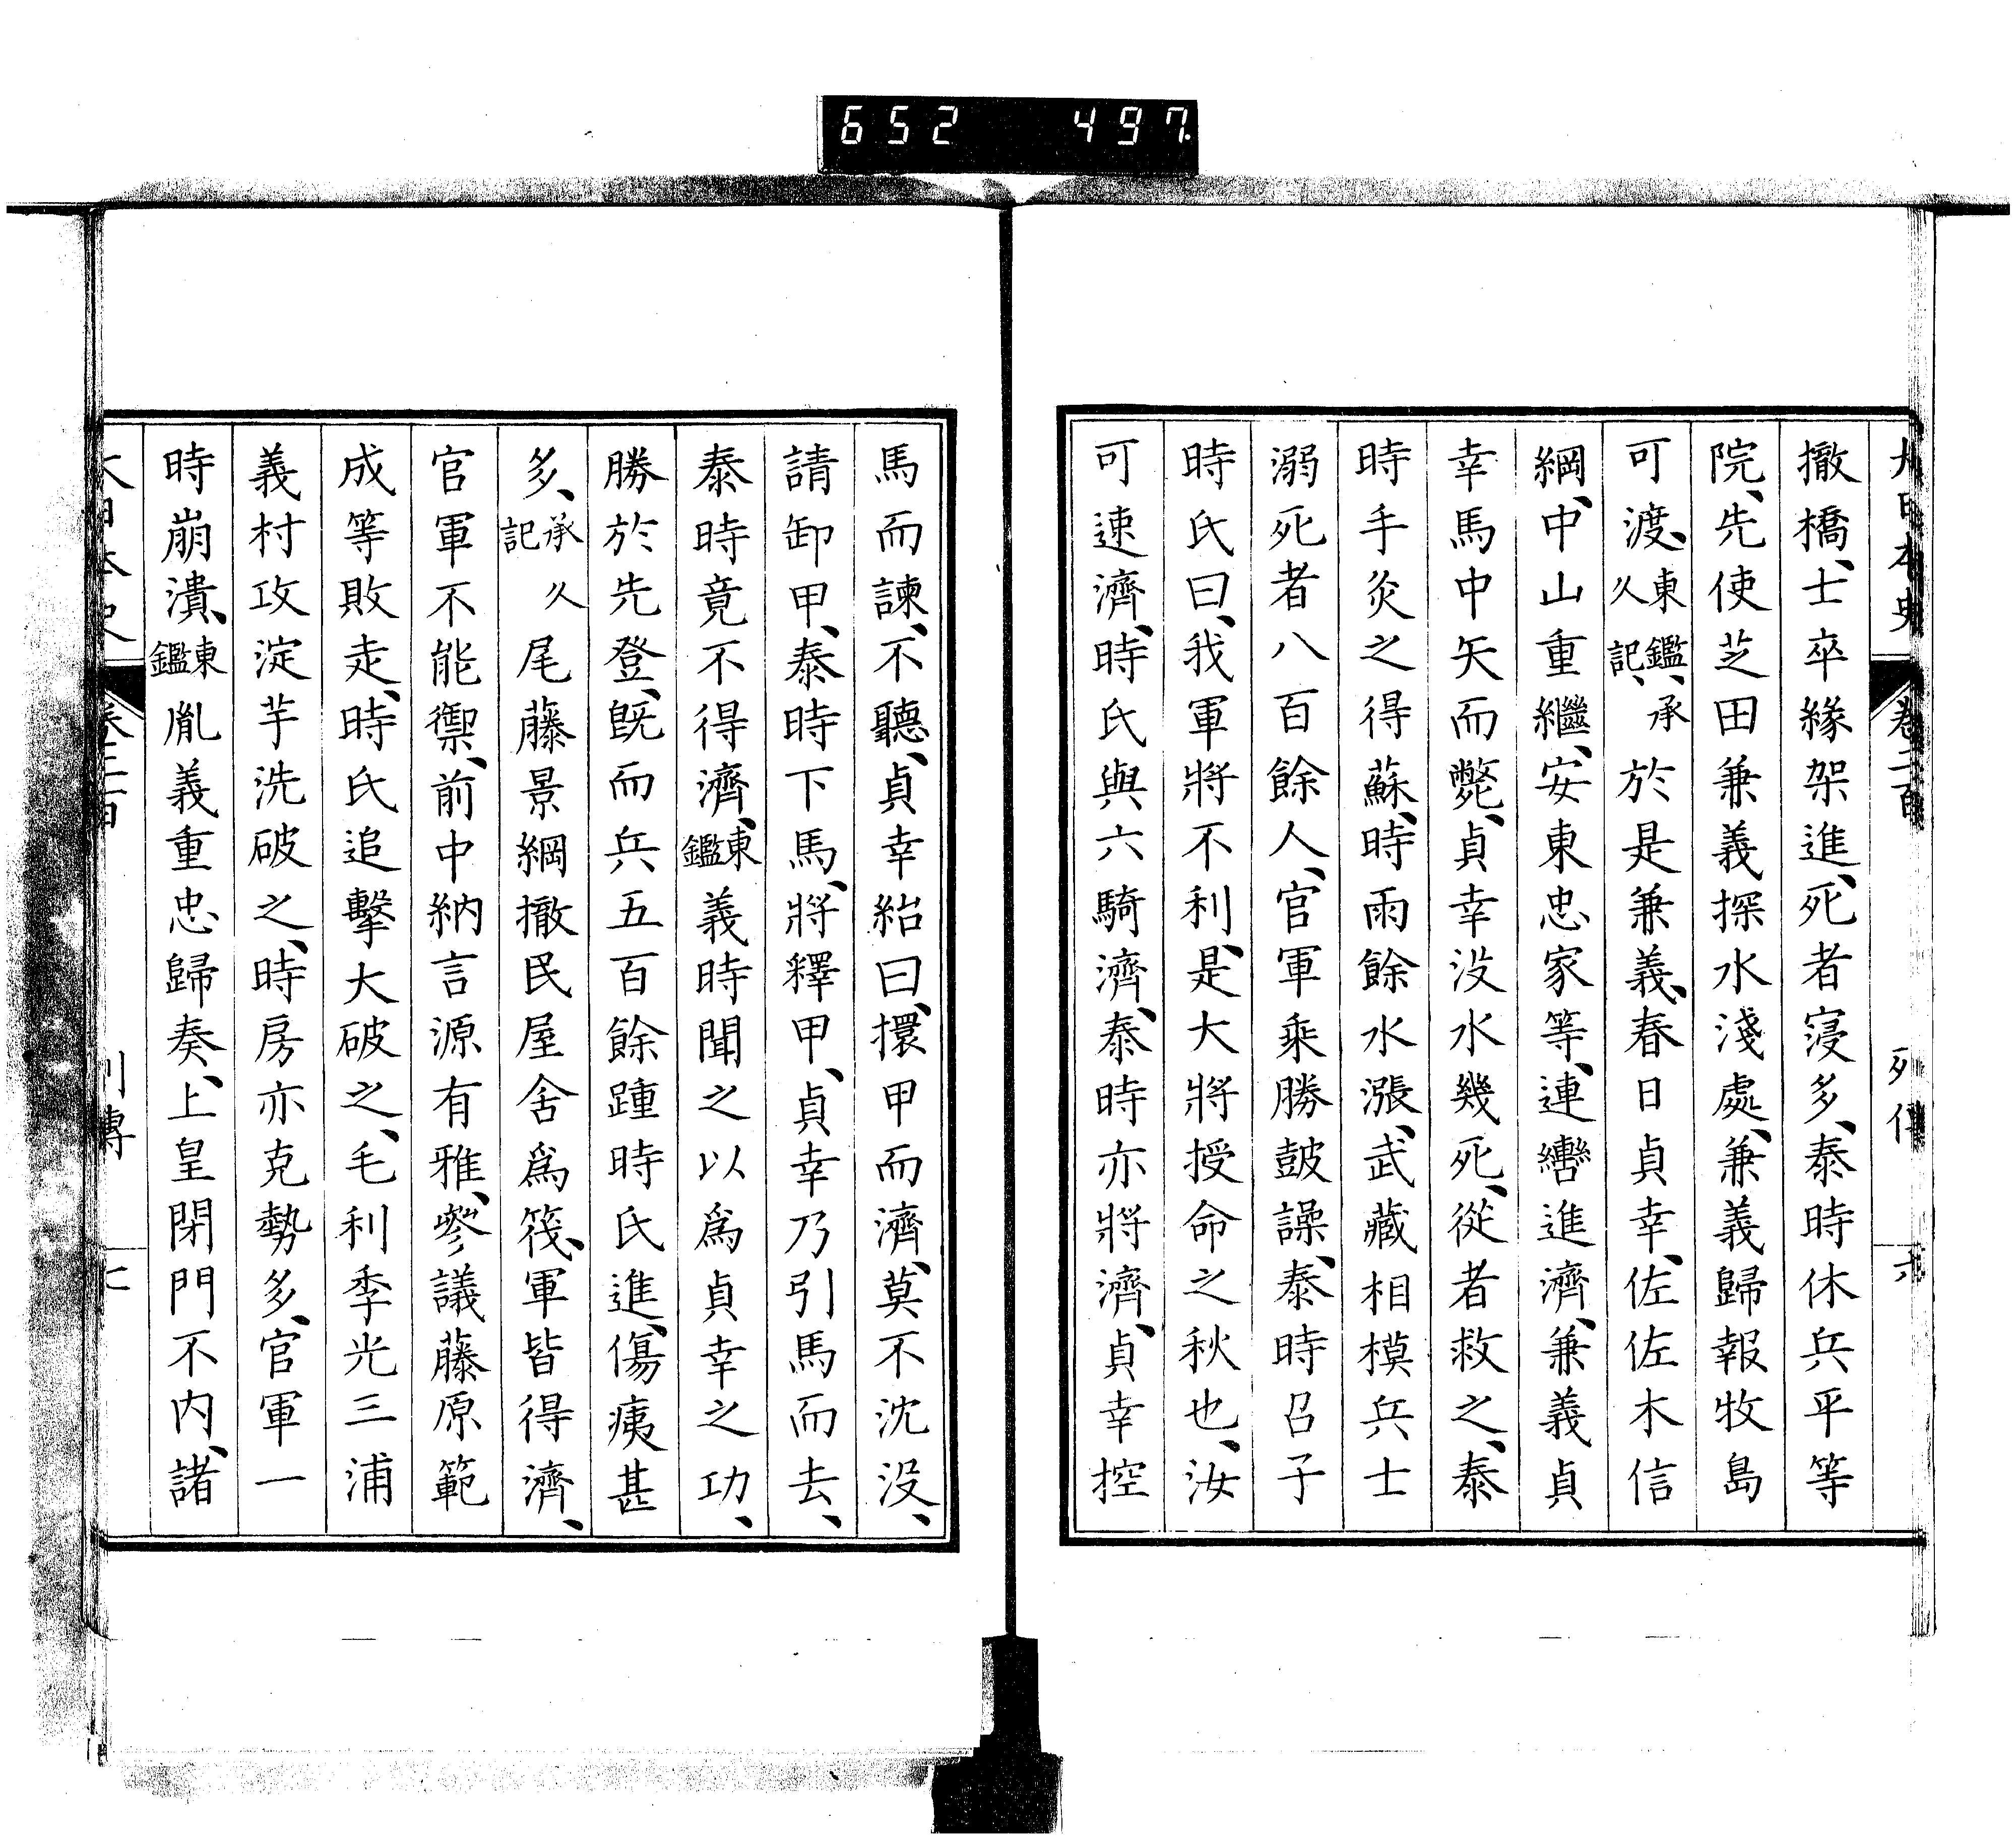 652 497
大日本史 卷二百 列傳 六
撤橋、士卒緣架進、死者寖多、泰時休兵平等
院、先使芝田兼義探水淺處、兼義歸報牧島
可渡、東鑑、承久記、於是兼義、春日貞幸、佐佐木信
綱、中山重繼、安東忠家等、連轡進濟、兼義貞
幸馬中矢而斃、貞幸没水幾死、從者救之、泰
時手灸之得蘇、時雨餘水漲、武藏相模兵士
溺死者八百餘人、官軍乘勝鼓譟、泰時召子
時氏曰、我軍將不利、是大將授命之秋也、汝
可速濟、時氏與六騎濟、泰時亦將濟、貞幸控
馬而諫、不聽、貞幸紿曰、擐甲而濟、莫不沈没、
請卸甲、泰時下馬、將釋甲、貞幸乃引馬而去、
泰時竟不得濟、東鑑義時聞之以爲貞幸之功、
勝於先登、既而兵五百餘踵時氏進、傷痍甚
多、承久記尾藤景綱撤民屋舍爲筏、軍皆得濟、
官軍不能禦、前中納言源有雅、參議藤原範
成等敗走、時氏追擊大破之、毛利季光三浦
義村攻淀芋洗破之、時房亦克勢多、官軍一
時崩潰、東鑑胤義重忠歸奏、上皇閉門不内、諸
大日本史 卷二百 列傳 七